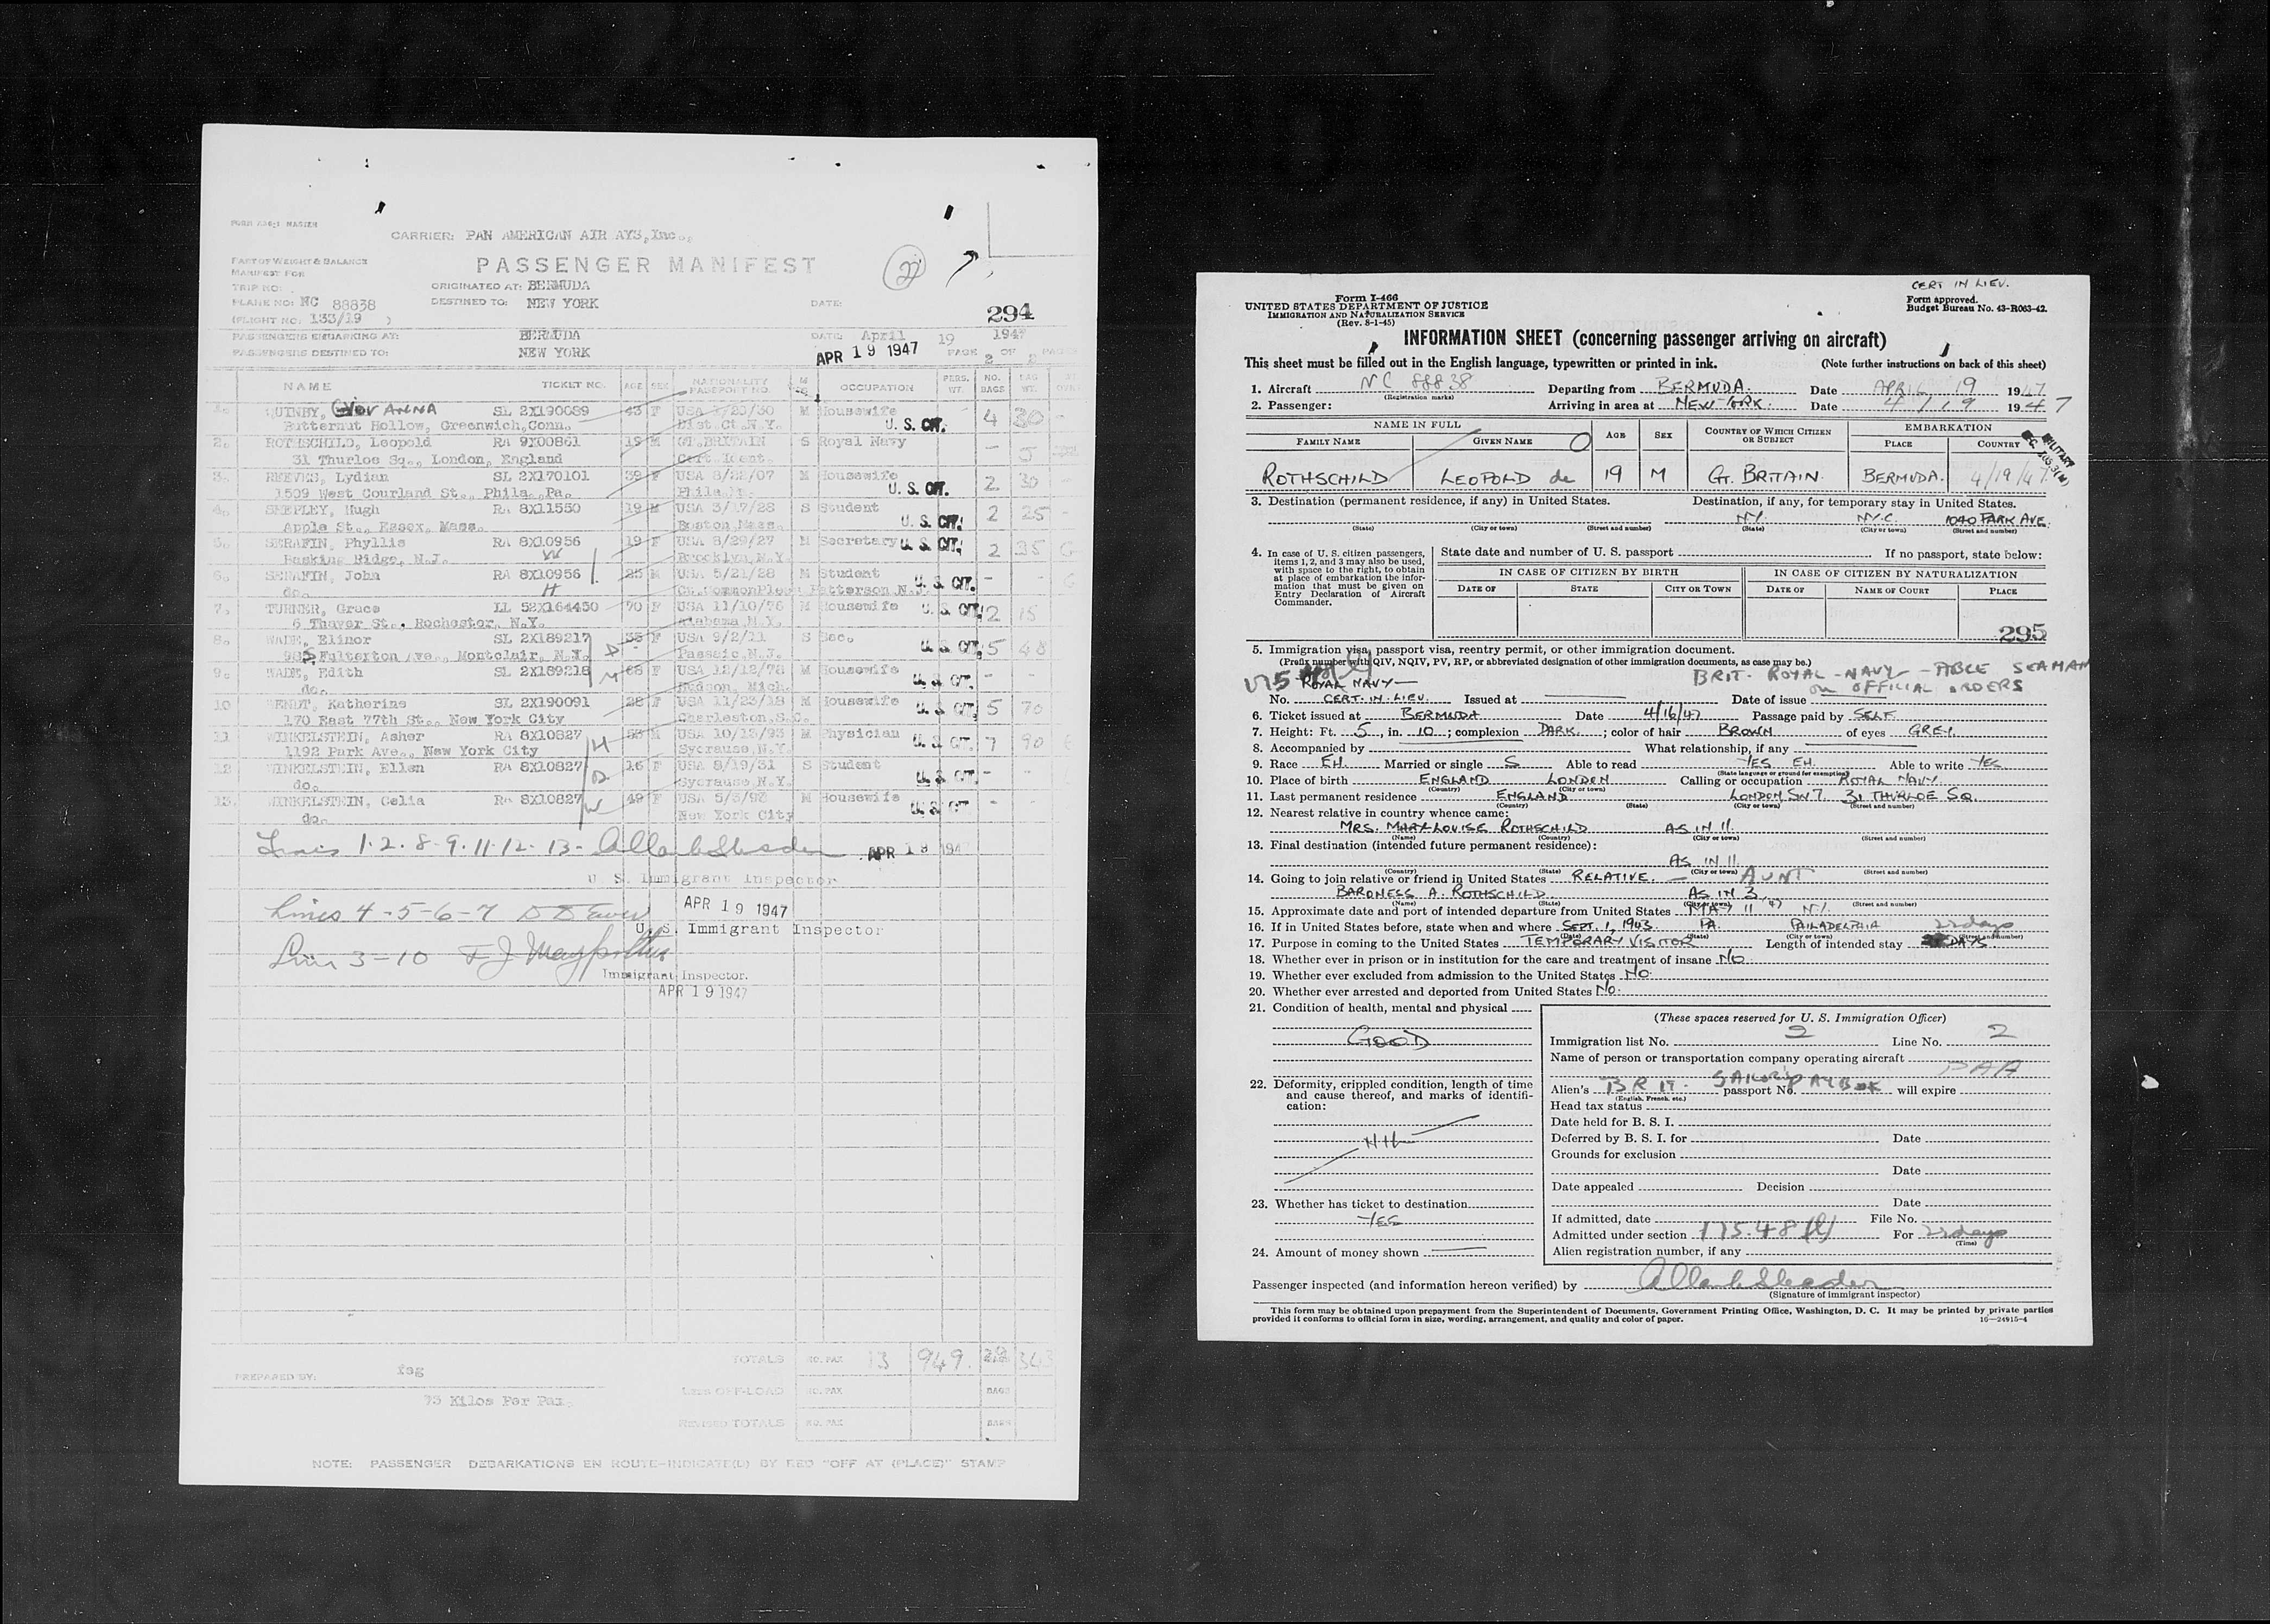 CARRIER: PAN AMERICAN AIR AYS, Inc.,
PART OF WEIGHT & BALANCE
MANIFEST FOR
PASSENGER MANIFEST
22
TRIP NO:
ORIGINATED AT: BERMUDA
PLANE NO: NC 88838
DESTINED TO: NEW YORK
DATE:
294
(FLIGHT NO. 133/19 )
PASSENGERS EMBARKING AT: BERMUDA DATE April 19 1947
PASSENGERS DESTINED TO: NEW YORK APR 19 1947 PAGE 2 OF 2 PAGES
NAME TICKET NO. AGE SEX NATIONALITY PASSPORT NO. OCCUPATION PERS. WT. NO. BAGS BAG WT.
1. QUINBY, GIOVANNA SL 2X190089 43 F USA M Housewife U. S. CIT. 4 30 -
Butternut Hollow, Greenwich, Conn. Dist. Ct. N.Y.
2. ROTHSCHILD, Leopold RA 9X00861 19 M GT. BRITAIN S Royal Navy - 5
31 Thurloe Sq., London, England Cert. Ident.
3. REEVES, Lydian SL 2X170101 39 F USA 8/22/07 M Housewife U. S. CIT. 2 30 -
1509 West Courland St., Phila., Pa. Phila.
4. SHEPLEY, Hugh RA 8X11550 19 M USA 3/17/28 S Student U. S. CIT. 2 25 -
Apple St., Essex, Mass. Boston, Mass.
5. SERAFIN, Phyllis RA 8X10956 19 F USA 8/29/27 M Secretary U. S. CIT. 2 35 G
Basking Ridge, N.J. W Brooklyn, N.Y.
6. SERAFIN, John RA 8X10956 25 M USA 5/21/28 M Student U. S. CIT. - - G
do. H Patterson N.J.
7. TURNER, Grace LL 52X164450 70 F USA 11/10/76 M Housewife U. S. CIT. 2 15
6 Thayer St., Rochester, N.Y. Alabama N.Y.
8. WADE, Elinor SL 2X189217 35 F USA 9/2/11 S Sec. U. S. CIT. 5 48
Fullerton Ave., Montclair, N.J. Passaic, N.J.
9. WADE, Edith SL 2X189218 M 68 F USA 12/12/78 M Housewife U. S. CIT. - -
do. Hudson, Mich.
10 WENDT, Katherine SL 2X190091 28 F USA 11/23/18 M Housewife U. S. CIT. 5 70
170 East 77th St., New York City Charleston, S.C.
11 WINKELSTEIN, Asher RA 8X10827 H 53 M USA 10/13/93 M Physician U. S. CIT. 7 90
1192 Park Ave., New York City Sycrause, N.Y.
12 WINKELSTEIN, Ellen RA 8X10827 D 16 F USA 8/19/31 S Student U. S. CIT. - -
do. Sycrause N.Y.
13. WINKELSTEIN, Celia RA 8X10827 W 49 F USA 5/3/98 M Housewife U. S. CIT - -
do. New York City
Lines 1-2-8-9-11-12-13- APR 19 194
U. S. Immigrant Inspector
Lines 4-5-6-7 APR 19 1947
U. S. Immigrant Inspector
Line 3-10
Immigrant Inspector.
APR 19 1947
TOTALS NO. PAX 13 949. 29 343
PREPARED BY: fsg
LESS OFF-LOAD NO. PAX BAGS
75 Kilos Per Pax.
REVISED TOTALS NO. PAX BAGS
NOTE: PASSENGER DEBARKATIONS EN ROUTE-INDICATE(D) BY RED "OFF AT (PLACE)" STAMP
CERT IN LIEU.
Form I-466
UNITED STATES DEPARTMENT OF JUSTICE
IMMIGRATION AND NATURALIZATION SERVICE
(Rev. 8-1-45)
Form approved.
Budget Bureau No. 43-R063-42.
INFORMATION SHEET (concerning passenger arriving on aircraft)
This sheet must be filled out in the English language, typewritten or printed in ink. (Note further instructions on back of this sheet)
1. Aircraft NC 88838 Departing from BERMUDA. Date APRIL 19 1947
(Registration marks)
2. Passenger: Arriving in area at NEW YORK. Date 4/19 1947
NAME IN FULL AGE SEX COUNTRY OF WHICH CITIZEN OR SUBJECT EMBARKATION
FAMILY NAME GIVEN NAME PLACE COUNTRY
ROTHSCHILD LEOPOLD de 19 M GT. BRITAIN. BERMUDA. 4/19/47
3. Destination (permanent residence, if any) in United States. Destination, if any, for temporary stay in United States.
N.Y. N.Y.C. 1040 PARK AVE.
(State) (City or town) (Street and number) (State) (City or town) (Street and number)
4. In case of U. S. citizen passengers, items 1, 2, and 3 may also be used, with space to the right, to obtain at place of embarkation the information that must be given on Entry Declaration of Aircraft Commander.
State date and number of U. S. passport If no passport, state below:
IN CASE OF CITIZEN BY BIRTH IN CASE OF CITIZEN BY NATURALIZATION
DATE OF STATE CITY OR TOWN DATE OF NAME OF COURT PLACE
295
5. Immigration visa, passport visa, reentry permit, or other immigration document.
(Prefix number with QIV, NQIV, PV, RP, or abbreviated designation of other immigration documents, as case may be.)
ROYAL NAVY — BRIT. ROYAL - NAVY - ABLE SEAMAN
on OFFICIAL ORDERS
No. CERT. IN LIEU. Issued at Date of issue
6. Ticket issued at BERMUDA Date 4/16/47 Passage paid by SELF
7. Height: Ft. 5, in. 10; complexion DARK.; color of hair BROWN of eyes GREY
8. Accompanied by What relationship, if any
9. Race EH. Married or single S Able to read YES EH. Able to write YES
(State language or ground for exemption)
10. Place of birth ENGLAND LONDON Calling or occupation ROYAL NAVY.
(Country) (City or town)
11. Last permanent residence ENGLAND LONDON SW7. 31 THURLOE SQ.
(Country) (State) (City or town) (Street and number)
12. Nearest relative in country whence came:
MRS. MARY LOUISE ROTHSCHILD AS IN 11.
(Name) (Country) (City or town) (Street and number)
13. Final destination (intended future permanent residence):
AS IN 11.
(Country) (State) (City or town) (Street and number)
14. Going to join relative or friend in United States RELATIVE. — AUNT
BARONESS A. ROTHSCHILD AS IN 3
(Name) (State) (City or town) (Street and number)
15. Approximate date and port of intended departure from United States MAY 11 '47 N.Y.
16. If in United States before, state when and where SEPT. 1, 1943. PA. PHILADELPHIA
(Date) (State) (City or town) (Street and number)
17. Purpose in coming to the United States TEMPORARY VISITOR Length of intended stay 22 days DAYS
18. Whether ever in prison or in institution for the care and treatment of insane NO.
19. Whether ever excluded from admission to the United States NO.
20. Whether ever arrested and deported from United States NO.
21. Condition of health, mental and physical
GOOD
22. Deformity, crippled condition, length of time and cause thereof, and marks of identification:
NIL
23. Whether has ticket to destination
YES
24. Amount of money shown
(These spaces reserved for U. S. Immigration Officer)
Immigration list No. 2 Line No. 2
Name of person or transportation company operating aircraft PAA
Alien's BRIT. passport No. SAILOR'S PAYBOOK will expire
(English, French, etc.)
Head tax status
Date held for B. S. I.
Deferred by B. S. I. for Date
Grounds for exclusion
Date
Date appealed Decision
Date
If admitted, date File No.
Admitted under section 175.48(l) For 22 days
(Time)
Alien registration number, if any
Passenger inspected (and information hereon verified) by
(Signature of immigrant inspector)
This form may be obtained upon prepayment from the Superintendent of Documents, Government Printing Office, Washington, D. C. It may be printed by private parties
provided it conforms to official form in size, wording, arrangement, and quality and color of paper.
16—24915-4